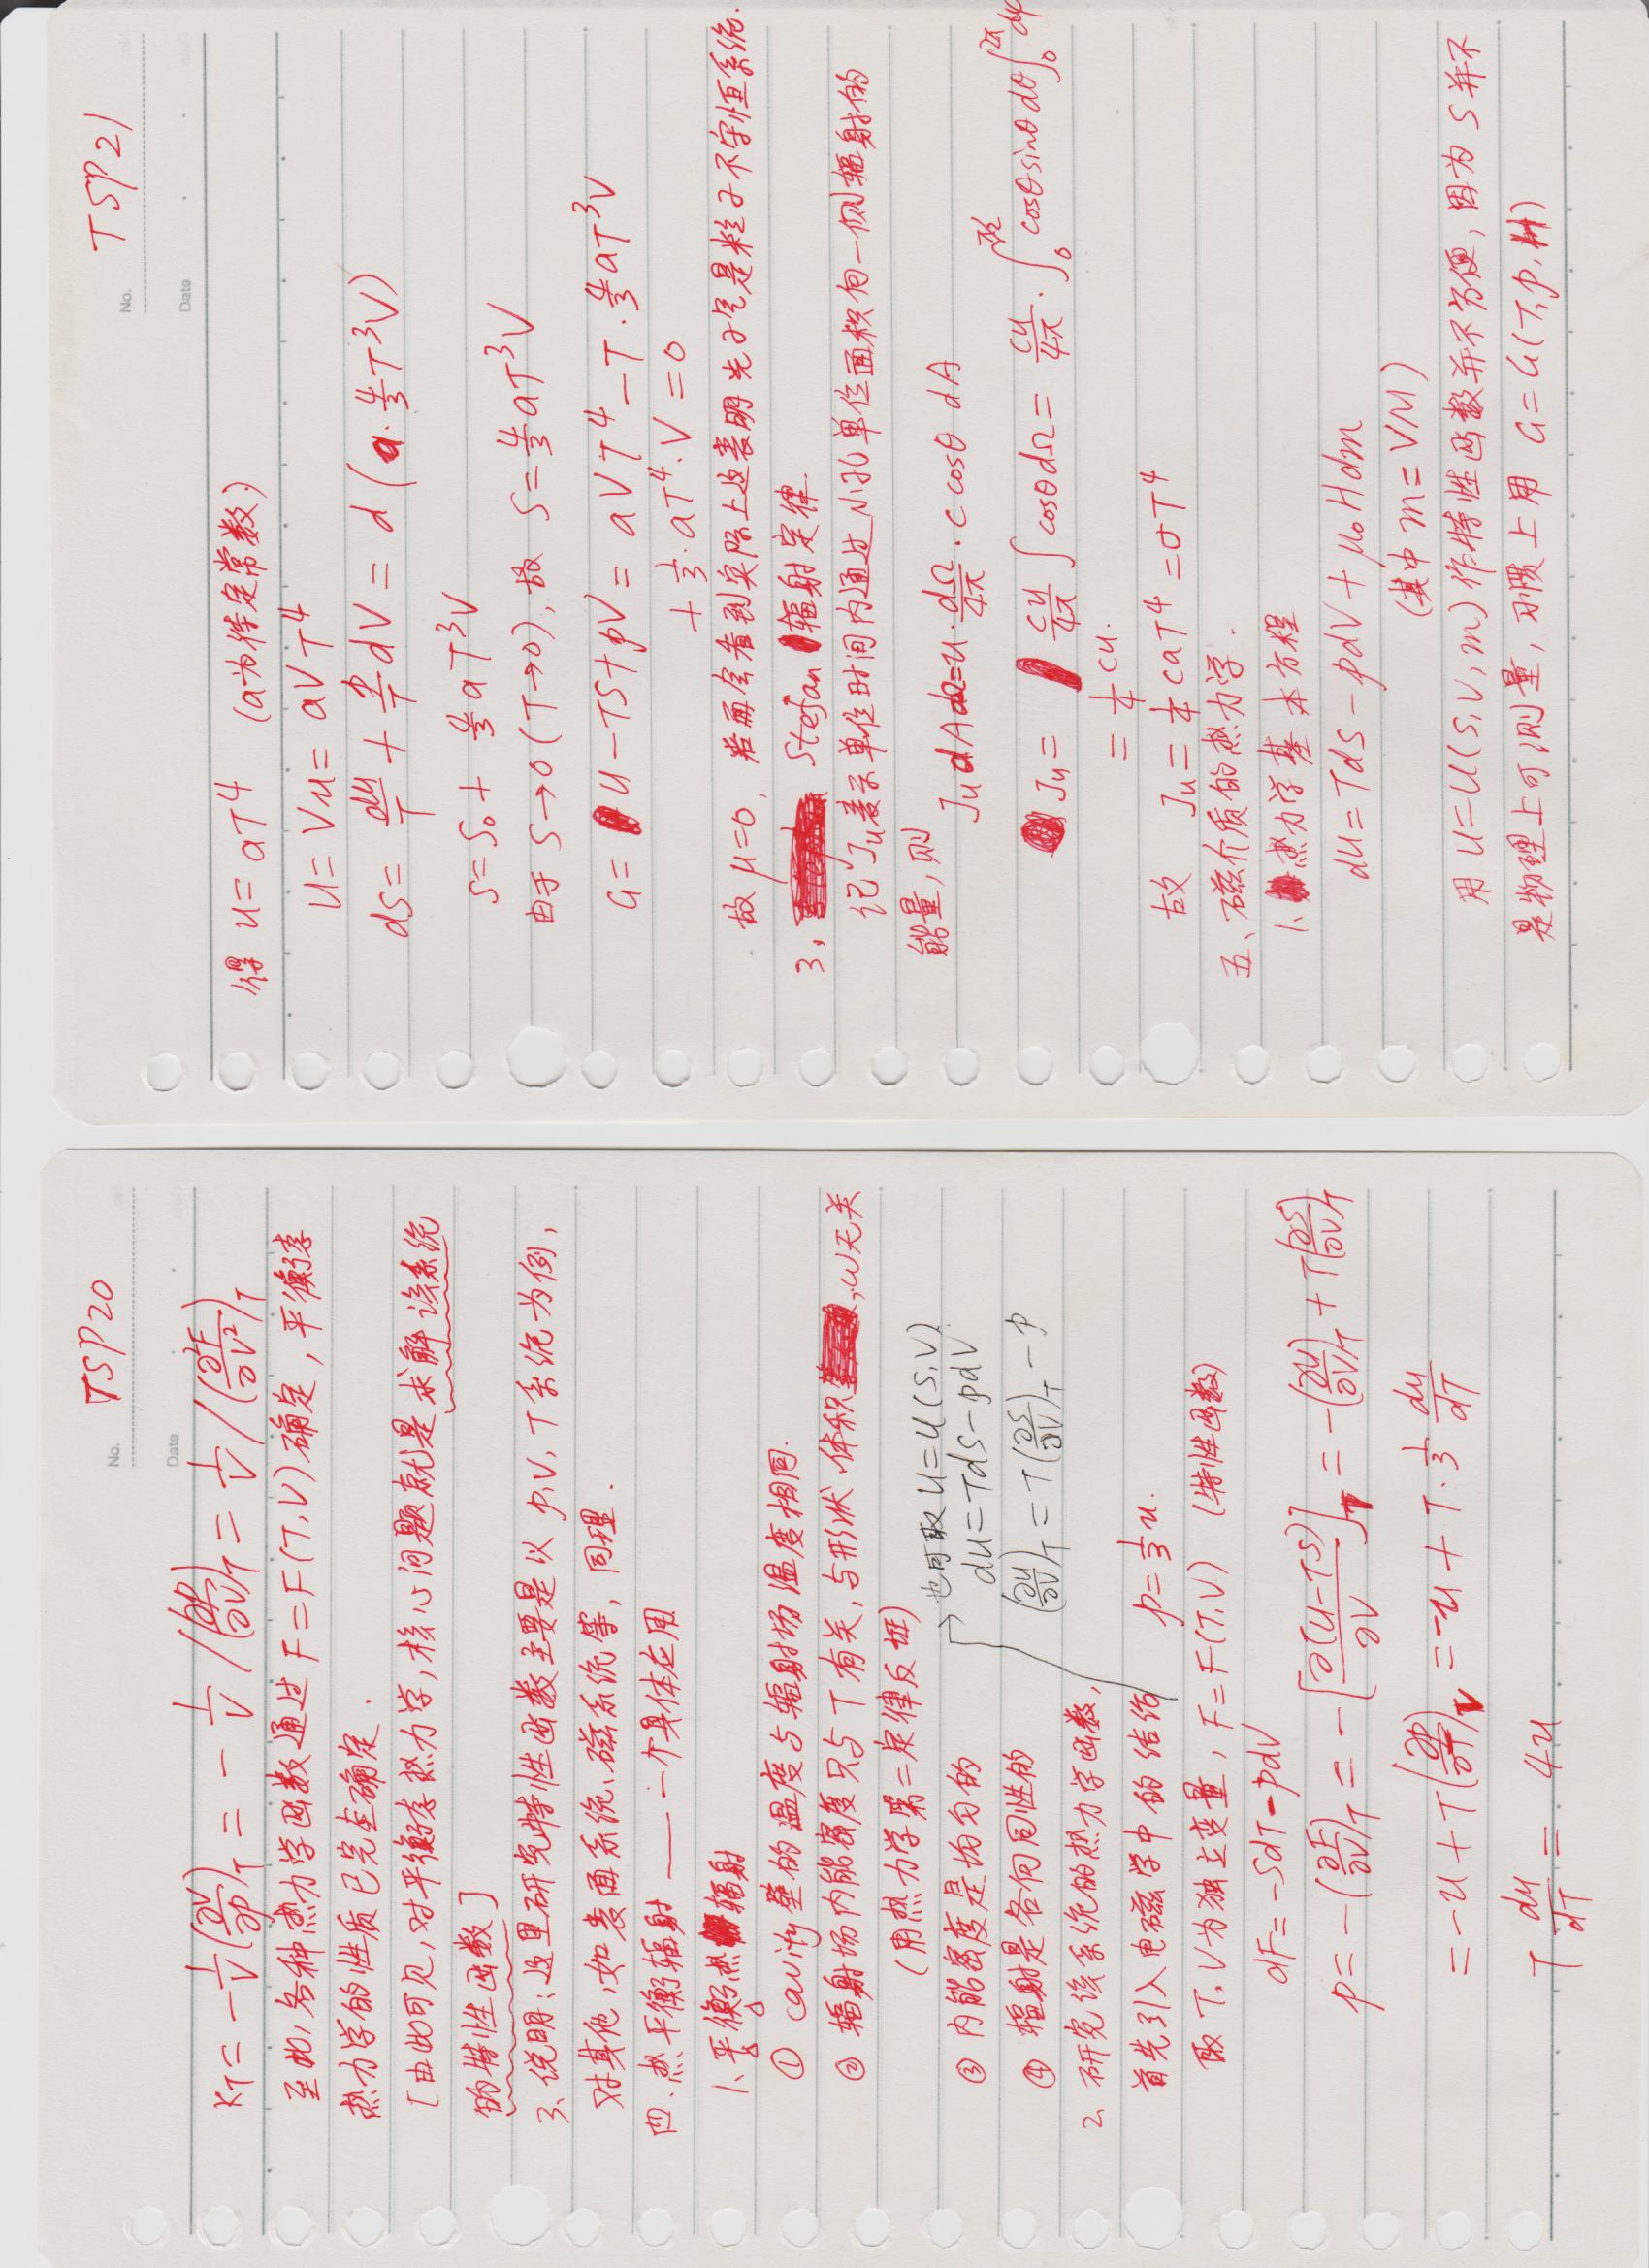 No. TSP20
Date
κ_T = -1/V (∂V/∂p)_T = -1/V /(∂p/∂V)_T = 1/V /(∂²F/∂V²)_T
至此,各种热力学函数通过 F=F(T,V)确定,平衡态
热力学的性质已完全确定.
[由此可见,对平衡态热力学,核心问题就是求解该系统
的特性函数]
3、说明:这里研究特性函数主要是以 p,V,T系统为例,
对其他,如表面系统、磁系统等,同理.
四.热平衡辐射 —— 一个具体应用
1、平衡热辐射
① cavity壁的温度与辐射场温度相同.
② 辐射场内能密度只与T有关,与形状、体积,ω无关
(用热力学第二定律反证)
③ 内能密度是均匀的
④ 辐射是各向同性的
也可取 U=U(S,V)
dU=TdS-pdV
(∂U/∂V)_T = T(∂S/∂V)_T - p
2、研究该系统的热力学函数,
首先引入电磁学中的结论 p=1/3 u.
取 T,V为独立变量, F=F(T,V) (特性函数)
dF=-SdT-pdV
p=-(∂F/∂V)_T = -[∂(U-TS)/∂V]_T = -(∂U/∂V)_T + T(∂S/∂V)_T
=-u+T(∂p/∂T)_V =-u+T·1/3 du/dT
T du/dT = 4u
No. TSP21
Date
得 u=aT⁴ (a为待定常数)
U=Vu=aVT⁴
dS= dU/T + p/T dV = d(a·4/3 T³V)
S=S₀+ 4/3 aT³V
由于 S→0(T→0),故 S=4/3 aT³V
G= U-TS+pV= aVT⁴-T·4/3 aT³V
+1/3·aT⁴·V=0
故 μ=0, 后面会看到实际上这表明光子气是粒子不守恒系统.
3、Stefan 辐射定律.
记 J_u表示单位时间内通过小孔单位面积向一侧辐射的
能量,则
J_u dA dΩ=u·dΩ/4π·c cosθ dA
J_u= cu/4π ∫cosθdΩ= cu/4π·∫₀^{π/2} cosθsinθdθ∫₀^{2π}dφ
=1/4 cu.
故 J_u=1/4 caT⁴=σT⁴
五、磁介质的热力学.
1、热力学基本方程
dU=TdS-pdV+μ₀Hdm
(其中 m=VM)
用 U=U(S,V,m)作特性函数并不方便,因为 S并不
是物理上可测量,习惯上用 G=G(T,p,H)